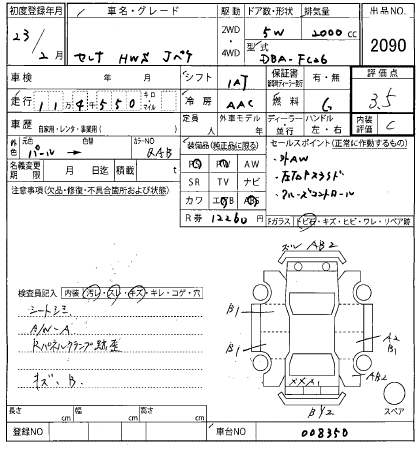 初度登録年月 車名・グレード 駆動 ドア数・形状 排気量 出品NO.
23/2月 セレナ HWS Jパケ 2WD・4WD 5W 2000cc 2090
型式 DBA-FC26
車検 年 月 シフト 1AT 保証書 新車時保証書 有・無 評価点
走行 114千550 キロ マイル 冷房 AAC 燃料 G 3.5
車歴 自家用・レンタ・事業用( ) 定員 人 外車モデル 年 ディーラー・並行 ハンドル 左・右 内装評価 C
外色 元色 パール → 色替 カラーNO QAB
装備品(純正品に限る) セールスポイント(正常に作動するもの)
名義変更期限 月 日迄 積載 t
PS PW AW
・社外AW
SR TV ナビ
・左右Pスライド
カワ エアB ABS
・クルーズコントロール
R券 12260円
Fガラス トビ石・キズ・ヒビ・ワレ・リペア跡
注意事項(欠品・修復・不具合箇所および状態)
検査員記入 内装(汚レ・スレ・キズ・キレ・コゲ・穴
シートシミ
A/W-A
キズ、B.
AB2
B1
B1
A2
B1
AB2
XXA1
BY2
スペア
長さ cm 幅 cm 高さ cm
登録NO 車台NO 008350